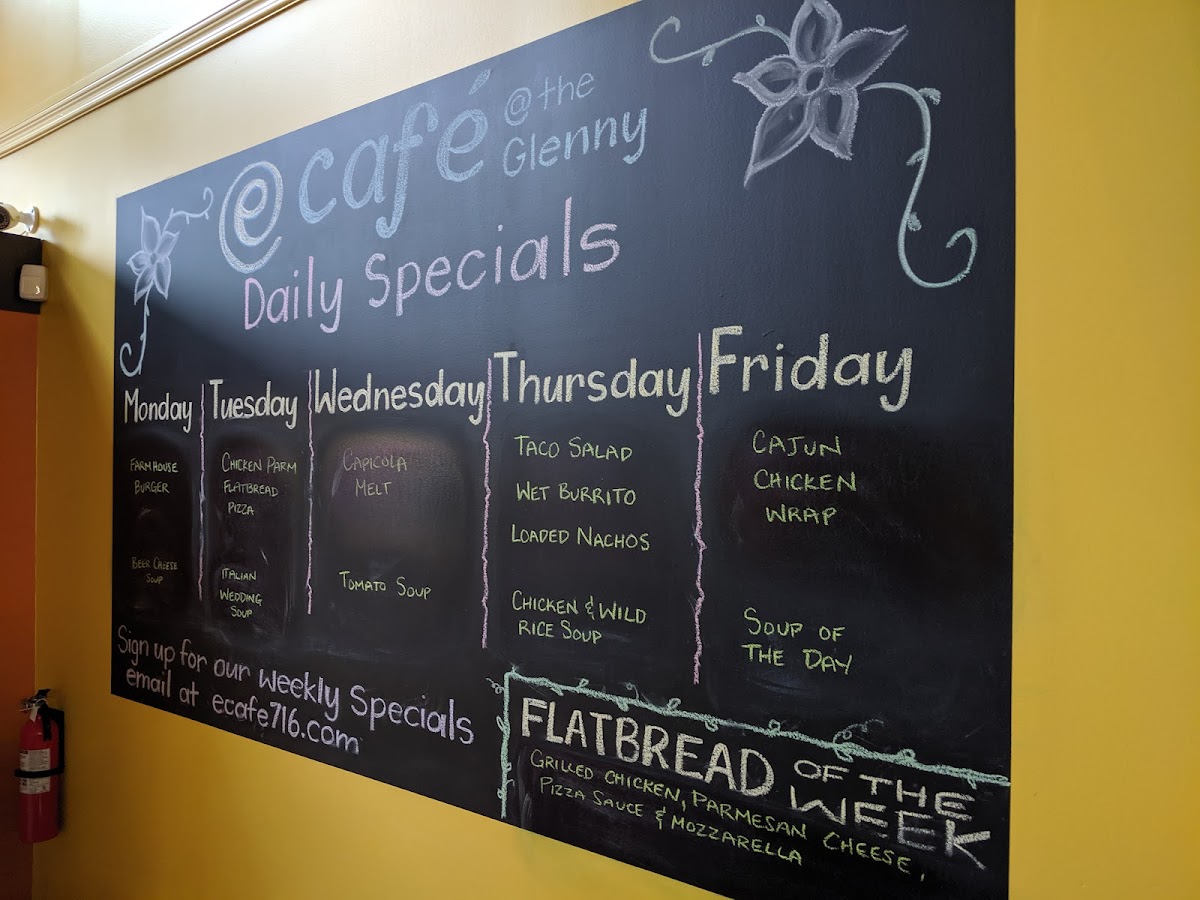 @ café @ the
Glenny
Daily Specials
Monday
FARMHOUSE
BURGER
BEER CHEESE
SOUP
Tuesday
CHICKEN PARM
FLATBREAD
PIZZA
ITALIAN
WEDDING
SOUP
Wednesday
CAPICOLA
MELT
TOMATO SOUP
Thursday
TACO SALAD
WET BURRITO
LOADED NACHOS
CHICKEN & WILD
RICE SOUP
Friday
CAJUN
CHICKEN
WRAP
SOUP OF
THE DAY
Sign up for our weekly Specials
email at ecafe716.com
FLATBREAD OF THE
WEEK
GRILLED CHICKEN, PARMESAN CHEESE,
PIZZA SAUCE & MOZZARELLA